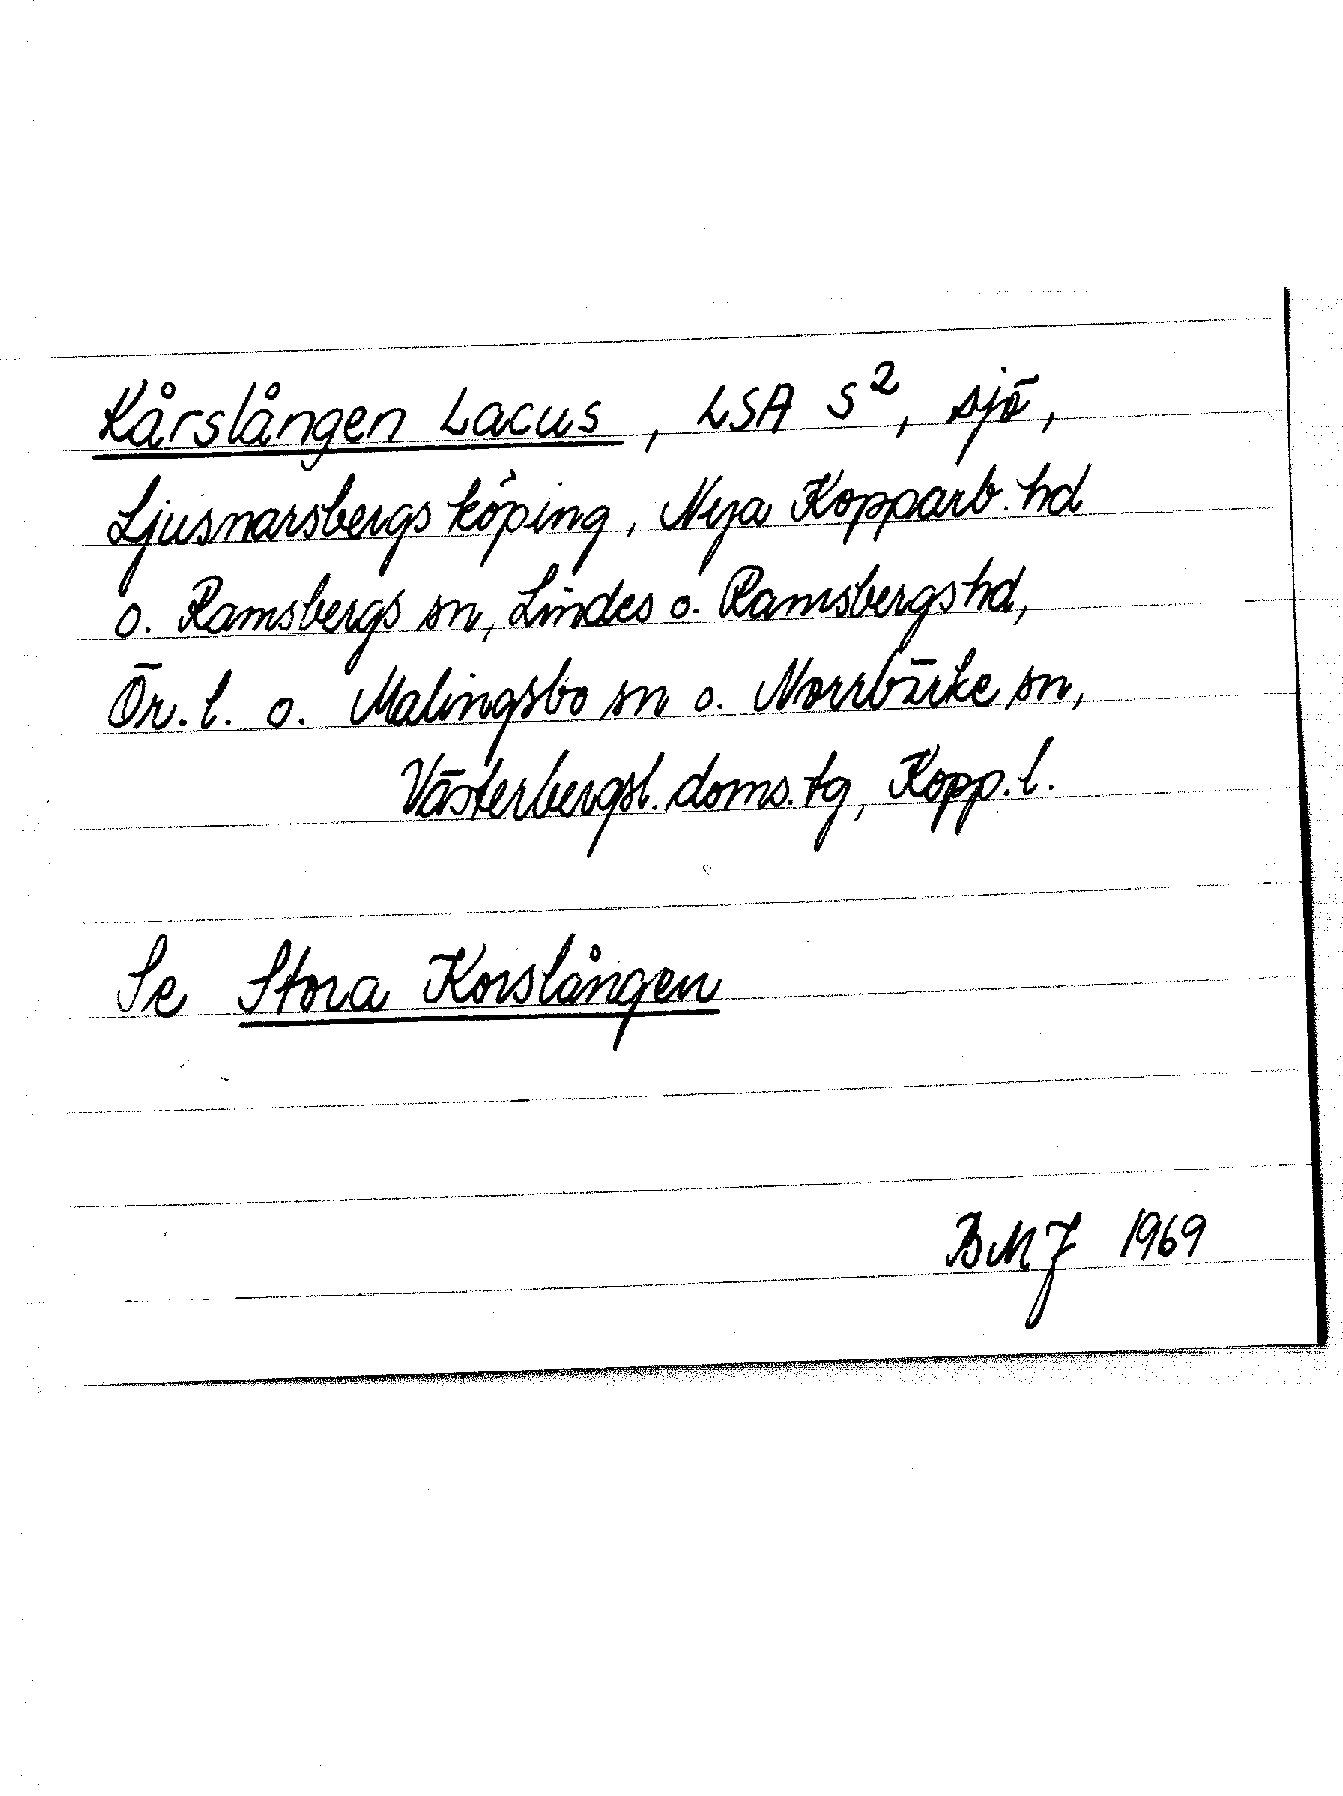 Kårslången Lacus, LSA S², sjö,
Ljusnarsbergs köping, Nya Kopparb. hd
o. Ramsbergs sn, Lindes o. Ramsbergs hd,
Ör. l. o. Malingsbo sn o. Norrbärke sn,
Västerbergsl. doms. tg, Kopp. l.
Se Stora Korslången
BMJ 1969